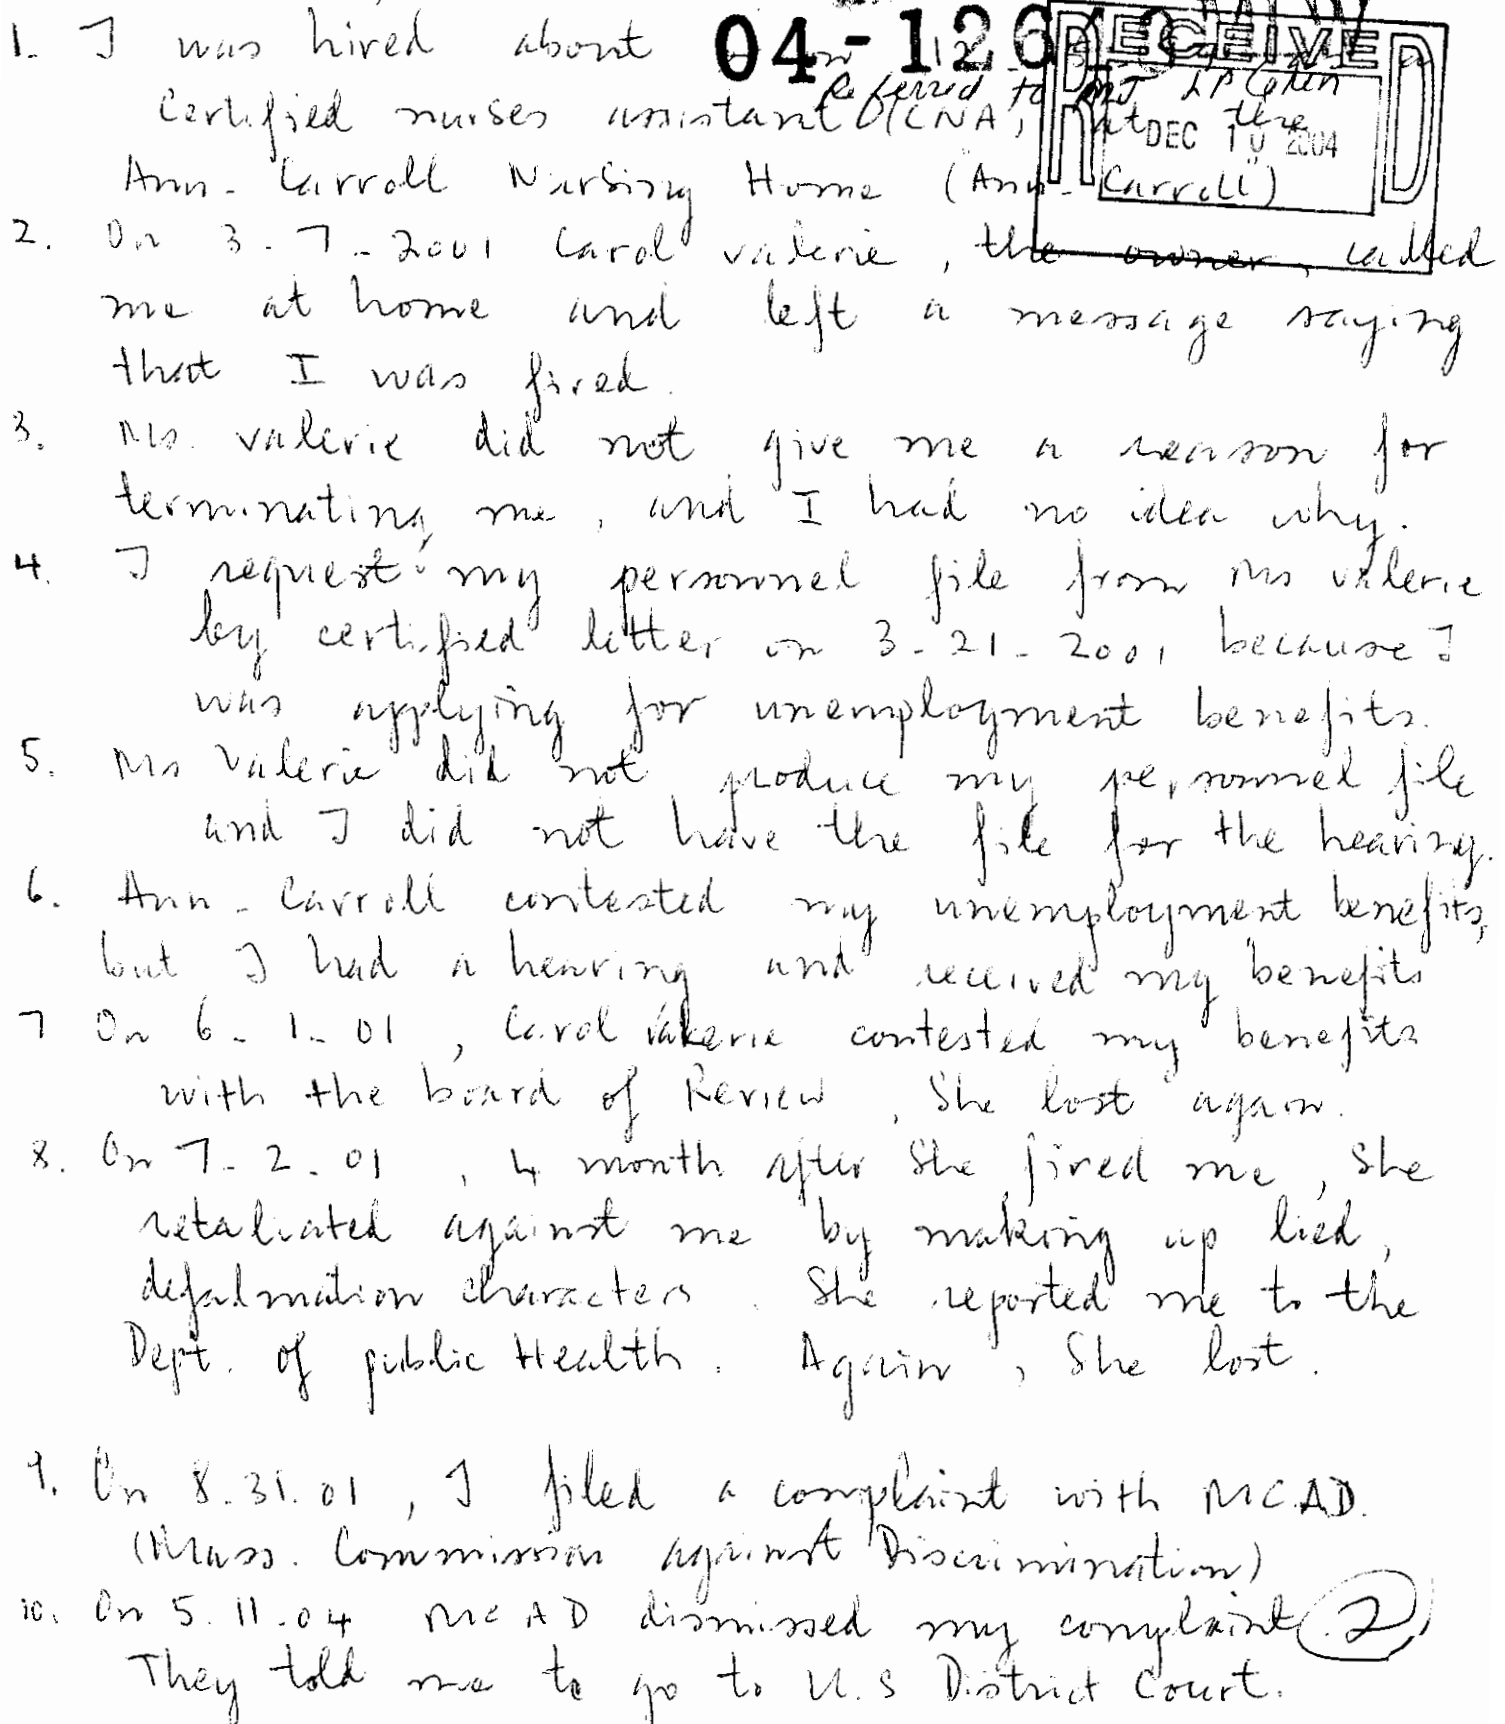 04-126
RECEIVED
1. I was hired about
Referred to MJ LP Cohen
Certified nurses assistant (CNA, at the
DEC 10 2004
Ann-Carroll Nursing Home (Ann-Carroll)
2. On 3-7-2001 Carol Valerie, the owner, called
me at home and left a message saying
that I was fired.
3. Ms. Valerie did not give me a reason for
terminating me, and I had no idea why.
4. I request my personnel file from Ms Valerie
by certified letter on 3-21-2001 because I
was applying for unemployment benefits.
5. Ms Valerie did not produce my personnel file
and I did not have the file for the hearing.
6. Ann-Carroll contested my unemployment benefits,
but I had a hearing and received my benefits
7 On 6-1-01, Carol Valerie contested my benefits
with the board of Review, She lost again.
8. On 7-2-01, 4 month after She fired me, She
retaliated against me by making up lied,
defalmation characters. She reported me to the
Dept. of public Health. Again, She lost.
9. On 8.31.01, I filed a complaint with MCAD.
(Mass. Commission against Discrimination)
10. On 5.11.04 MCAD dismissed my complaint
2
They told me to go to U.S District Court.